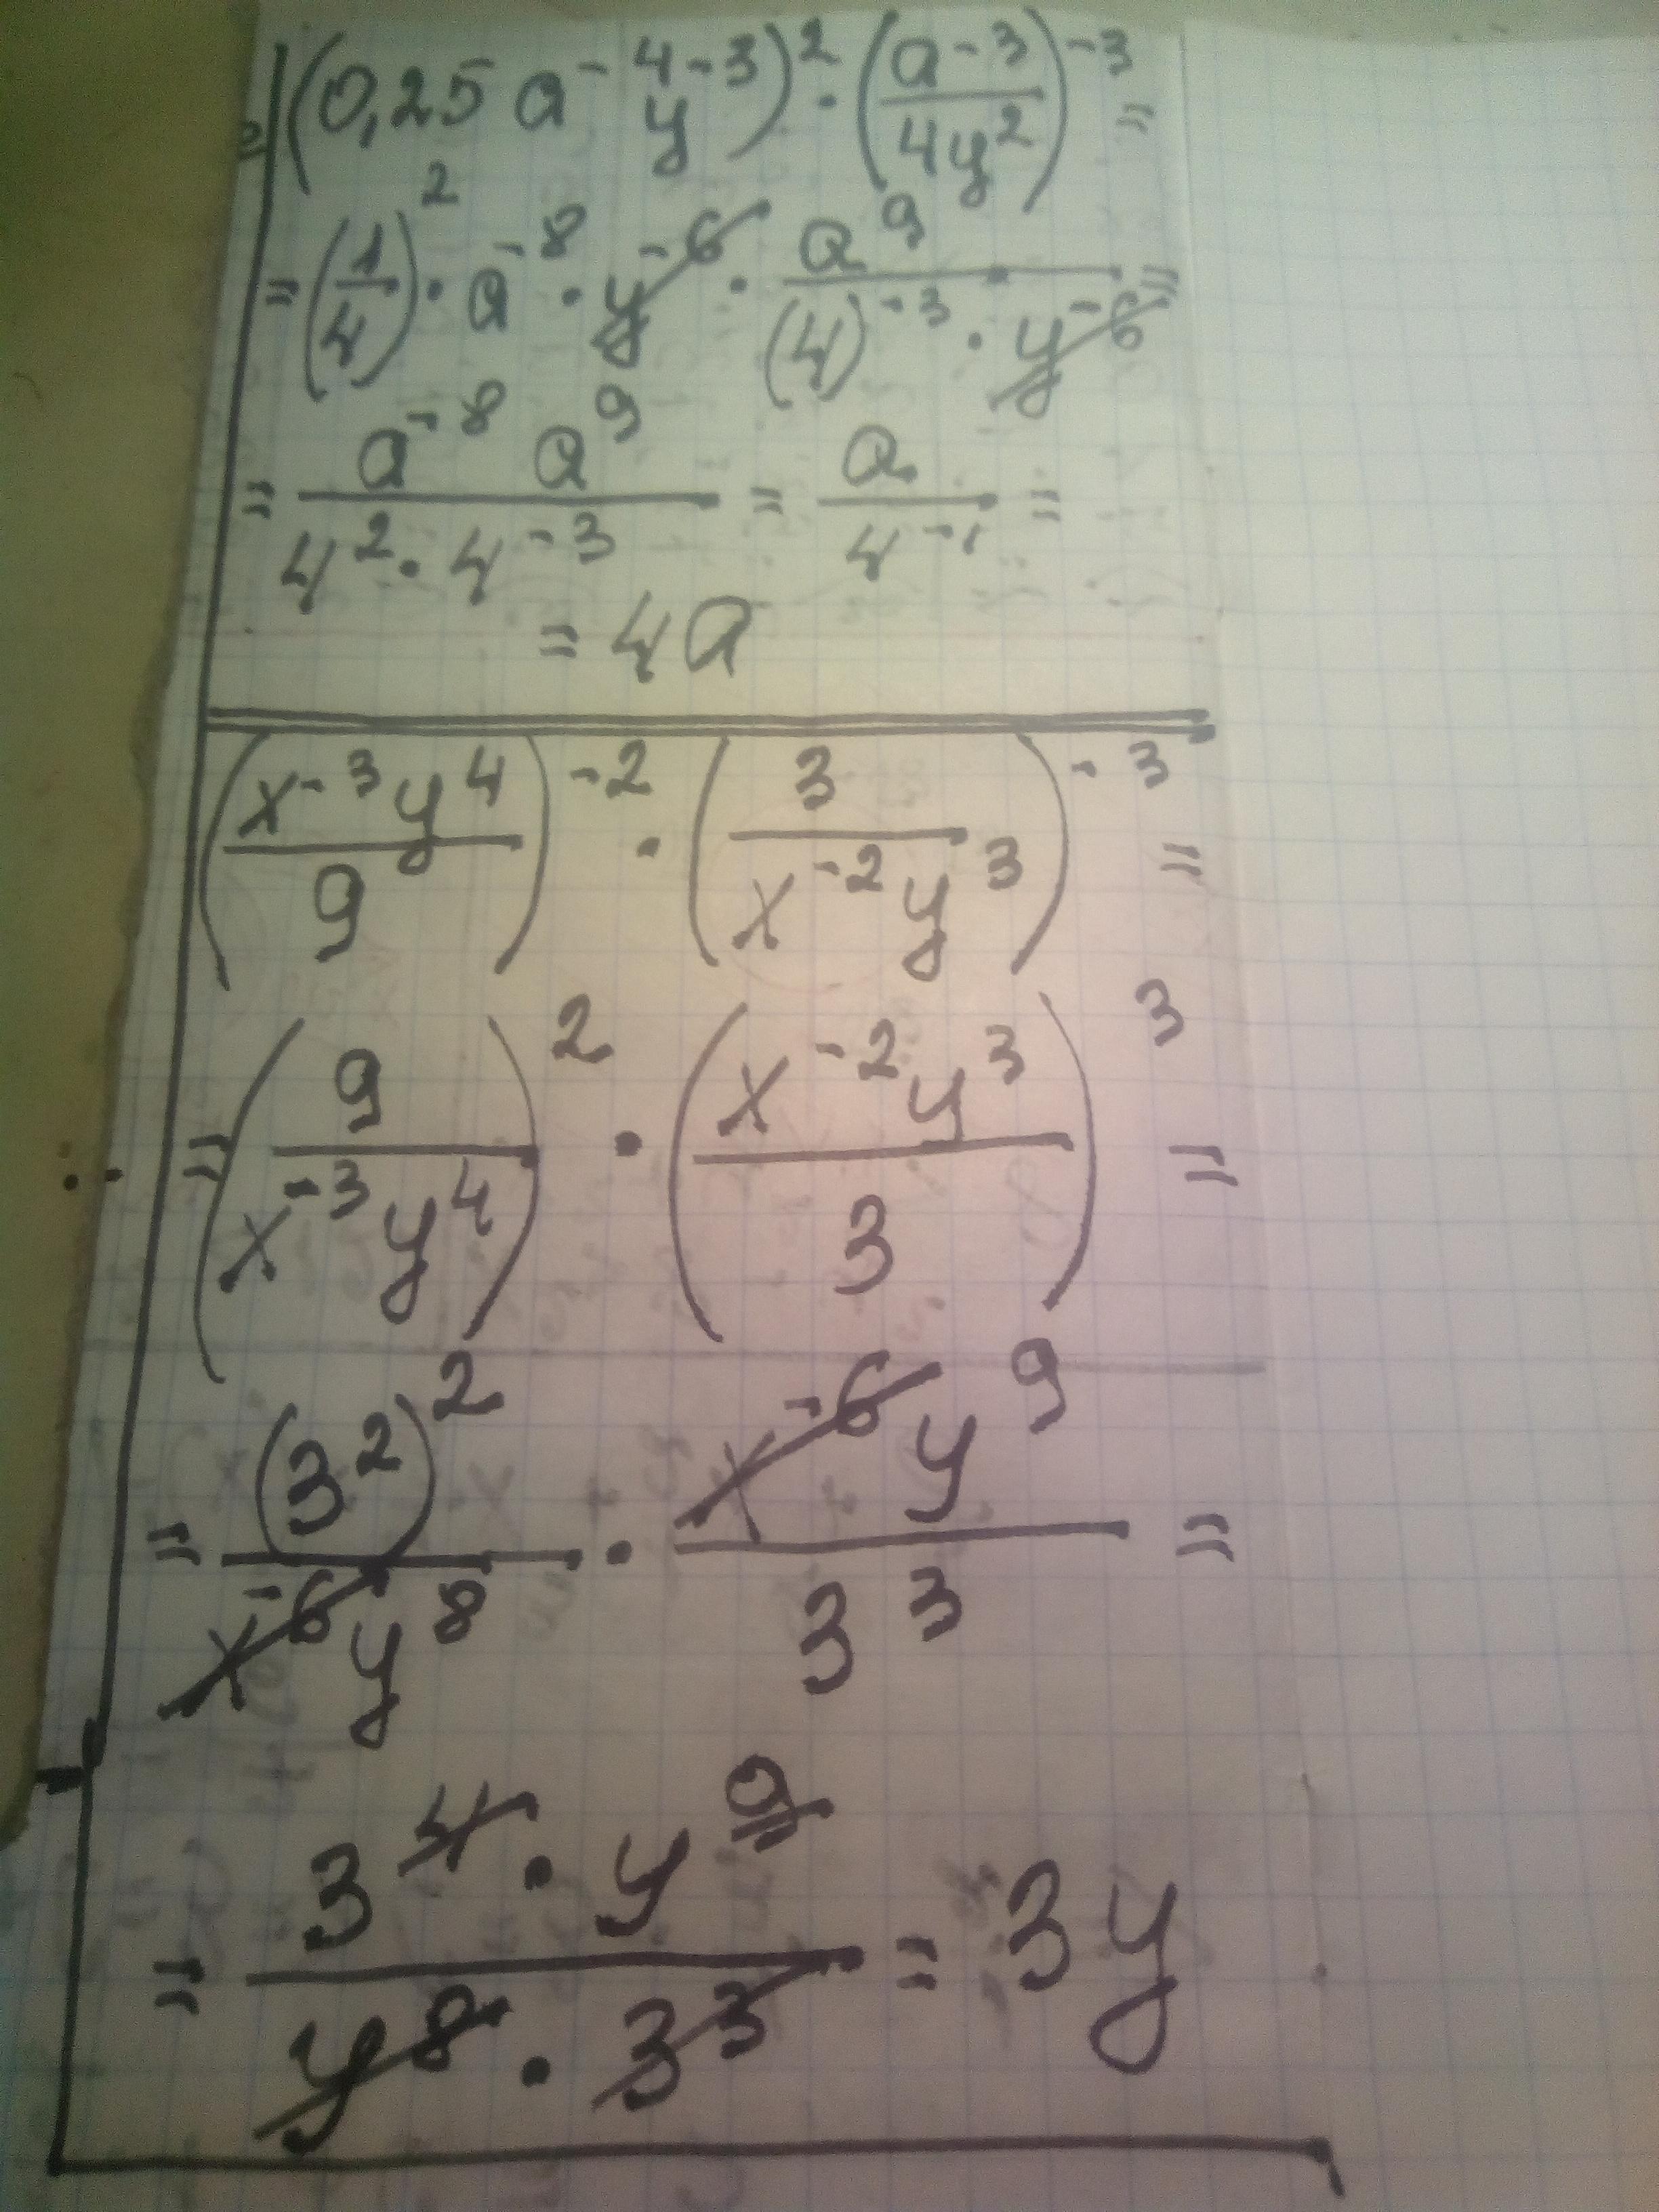 = (0,25 a⁻⁴y⁻³)² · (a⁻³/4y²)⁻³ =
= (1/4)² · a⁻⁸ · y⁻⁶ · a⁹/((4)⁻³ · y⁻⁶) =
= a⁻⁸ a⁹/(4² · 4⁻³) = a/4⁻¹ =
= 4a
(x⁻³y⁴/9)⁻² · (3/x⁻²y³)⁻³ =
= (9/x⁻³y⁴)² · (x⁻²y³/3)³ =
= (3²)²/x⁻⁶y⁸ · x⁻⁶y⁹/3³ =
= 3⁴ · y⁹/(y⁸ · 3³) = 3y